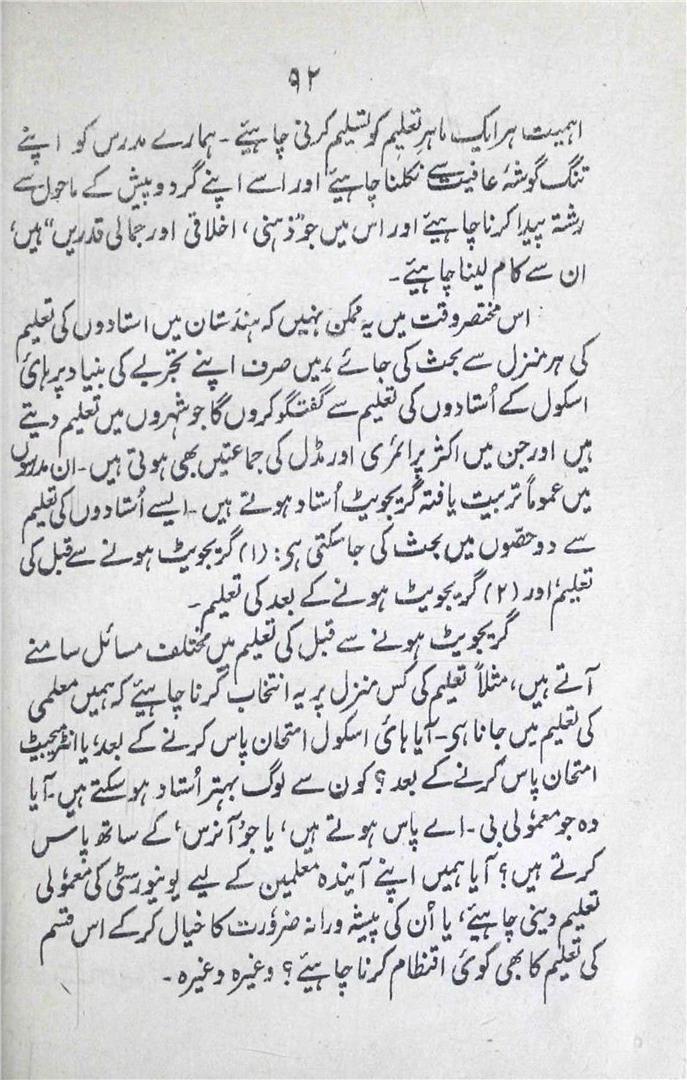 ۹۲
اہمیت ہر ایک ماہرِ تعلیم کو تسلیم کرنی چاہیئے ۔ ہمارے مدرس کو اپنے
تنگ گوشۂ عافیت سے نکلنا چاہیئے اور اسے اپنے گردوپیش کے ماحول سے
رشتہ پیدا کرنا چاہیئے اور اس میں جو ”ذہنی، اخلاقی اور جمالی قدریں“ ہیں،
ان سے کام لینا چاہیئے ۔
اس مختصر وقت میں یہ ممکن نہیں کہ ہندستان میں استادوں کی تعلیم
کی ہر منزل سے بحث کی جائے، میں صرف اپنے تجربے کی بنیاد پر ہائ
اسکول کے اُستادوں کی تعلیم سے گفتگو کروں گا جو شہروں میں تعلیم دیتے
ہیں اور جن میں اکثر پرائمری اور مڈل کی جماعتیں بھی ہوتی ہیں ۔ ان مدرسوں
میں عموماً تربیت یافتہ گریجویٹ اُستاد ہوتے ہیں ۔ ایسے اُستادوں کی تعلیم
سے دو حصّوں میں بحث کی جا سکتی ہی: (۱) گریجویٹ ہونے سے قبل کی
تعلیم، اور (۲) گریجویٹ ہونے کے بعد کی تعلیم ۔
گریجویٹ ہونے سے قبل کی تعلیم میں مختلف مسائل سامنے
آتے ہیں، مثلاً تعلیم کی کس منزل پر یہ انتخاب کرنا چاہیئے کہ ہمیں معلمی
کی تعلیم میں جانا ہی ۔ آیا ہائ اسکول امتحان پاس کرنے کے بعد، یا انٹرمیجیٹ
امتحان پاس کرنے کے بعد؟ کون سے لوگ بہتر اُستاد ہو سکتے ہیں ۔ آیا
وہ جو معمولی بی ۔ اے پاس ہوتے ہیں، یا جو ’آنرس‘ کے ساتھ پاس
کرتے ہیں؟ آیا ہمیں اپنے آیندہ معلمین کے لیے یونیورسٹی کی معمولی
تعلیم دینی چاہیئے، یا اُن کی پیشہ ورانہ ضرورت کا خیال کر کے اس قسم
کی تعلیم کا بھی کوئ انتظام کرنا چاہیئے؟ وغیرہ وغیرہ ۔